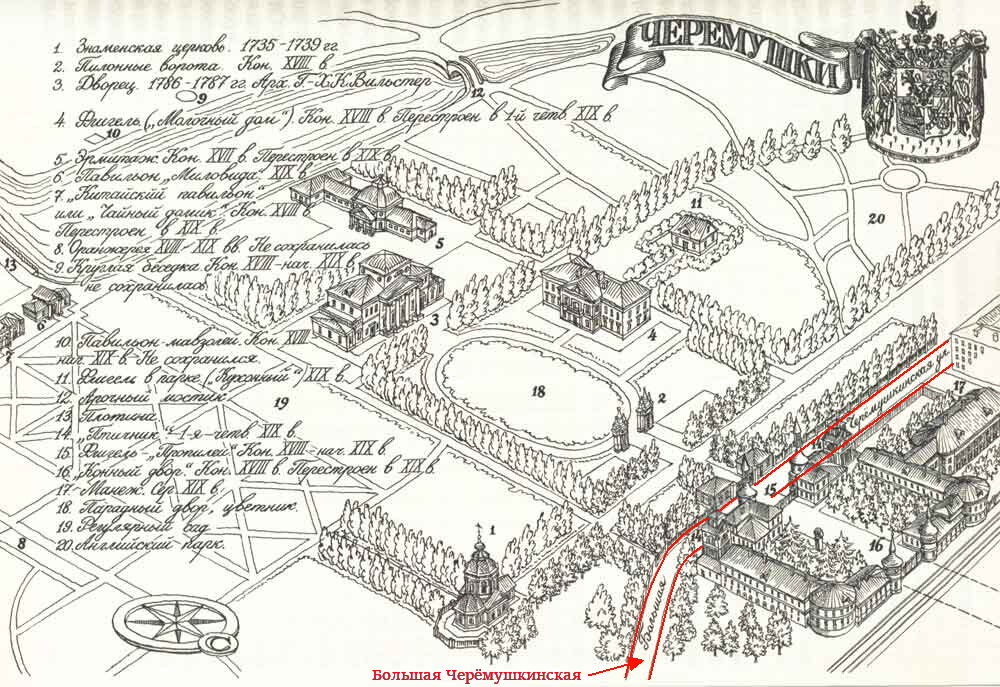 ЧЕРЁМУШКИ
1. Знаменская церковь. 1735-1739 гг
2. Пилонные ворота. Кон. XVIII в
3. Дворец. 1786-1787 гг. Арх. Г.-Х.К. Вильстер
9
12
4. Флигель („Молочный дом“) Кон. XVIII в Перестроен в 1-й четв. XIX в.
10
5. Эрмитаж. Кон. XVII в. Перестроен в XIX в.
6. Павильон „Миловида“ XIX в
7. „Китайский павильон“
или „Чайный домик“. Кон. XVIII в
Перестроен в XIX в.
8. Оранжерея XVIII-XIX вв. Не сохранилась
9. Круглая беседка. Кон. XVIII-нач. XIX в.
не сохранилась
10. Павильон-мавзолей. Кон. XVIII
нач. XIX в. Не сохранился.
11. Флигель в парке („Кухонный“) XIX в.
12. Арочный мостик.
13. Плотина
14. „Птичник“ 1-я четв. XIX в.
15. Флигель-„Пропилеи“ Кон. XVIII-нач. XIX в
16. „Конный двор“. Кон. XVIII в. Перестроен в XIX в.
17. Манеж. Сер. XIX в.
18. Парадный двор, цветник.
19. Регулярный сад
20. Английский парк.
11
20
5
13
6
7
3
4
18
2
19
17
Черёмушкинская ул.
14
15
1
16
8
Большая
Большая Черёмушкинская